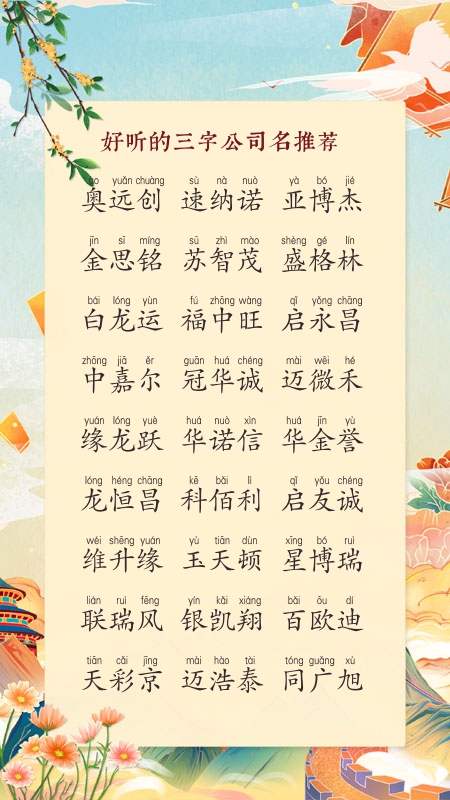 好听的三字公司名推荐
ào yuǎn chuàng sù nà nuò yà bó jié
奥远创 速纳诺 亚博杰
jīn sī míng sū zhì mào shèng gé lín
金思铭 苏智茂 盛格林
bái lóng yùn fú zhōng wàng qǐ yǒng chāng
白龙运 福中旺 启永昌
zhōng jiā ěr guān huá chéng mài wēi hé
中嘉尔 冠华诚 迈微禾
yuán lóng yuè huá nuò xìn huá jīn yù
缘龙跃 华诺信 华金誉
lóng héng chāng kē bǎi lì qǐ yǒu chéng
龙恒昌 科佰利 启友诚
wéi shēng yuán yù tiān dùn xīng bó ruì
维升缘 玉天顿 星博瑞
lián ruì fēng yín kǎi xiáng bǎi ōu dí
联瑞风 银凯翔 百欧迪
tiān cǎi jīng mài hào tài tóng guǎng xù
天彩京 迈浩泰 同广旭